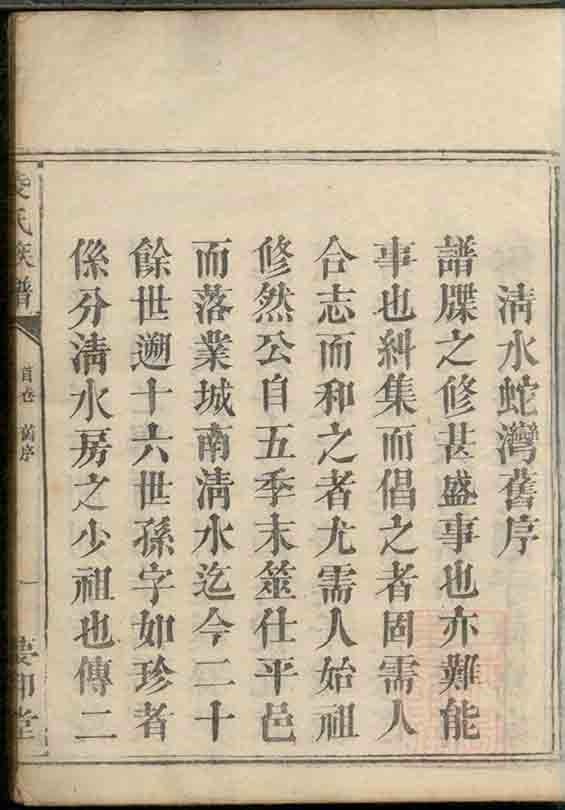 清水蛇灣舊序
譜牒之修甚盛事也亦難能
事也糾集而倡之者固需人
合志而和之者尤需人始祖
修然公自五季末筮仕平邑
而落業城南清水迄今二十
餘世遡十六世孫字如珍者
係分清水房之少祖也傳二
氏族譜
首卷 舊序
一
堂